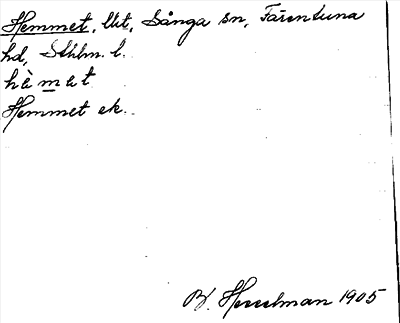 Hemmet, lht, Sånga sn, Färentuna
hd, Sthlm. l.
hèmet
Hemmet ek.
B. Hesselman 1905